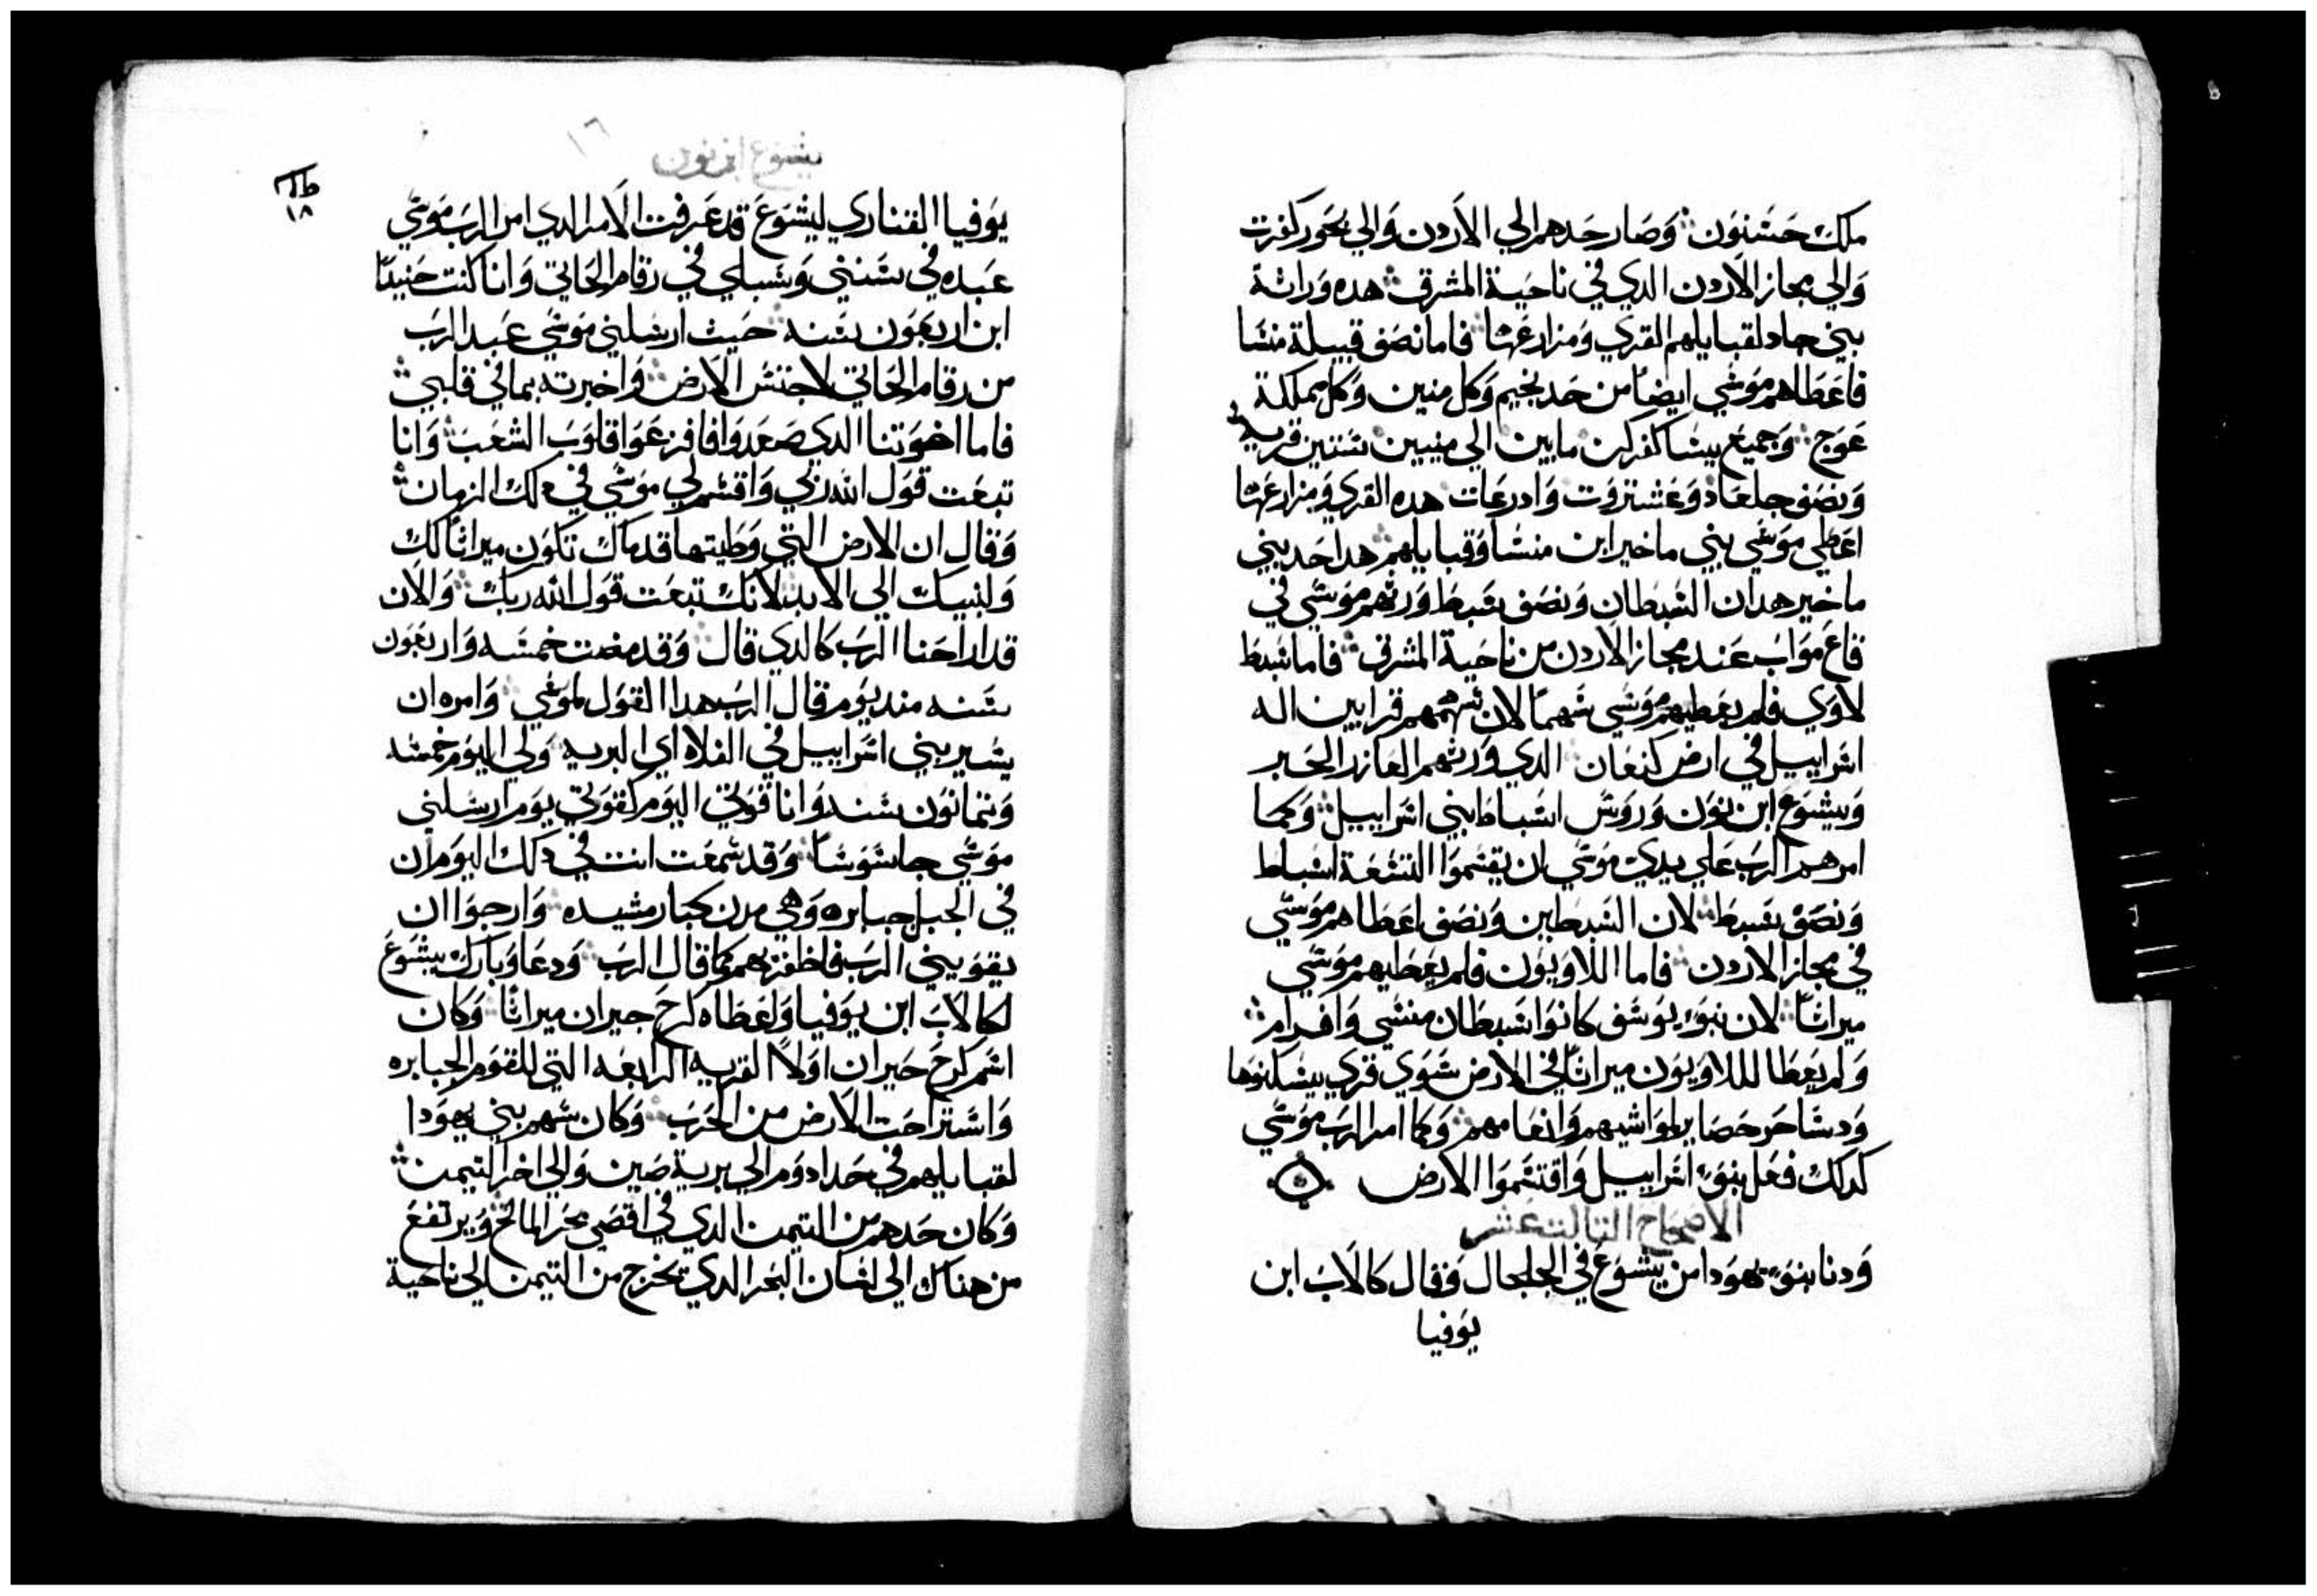 ملك حسنون وصار حدهم الي الاردن والي بحور كنرت
والي مجاز الاردن الدي في ناحية المشرق هده وراثة
بني جاد لقبايلهم القري ومزارعها فاما نصف قبيلة منشا
فاعطاهم موسي ايضا من حد نجيم وكل منين وكل مملكة
عوج وجميع بيشا كفركن مابين الي منيين ستين قريه
ونصف جلعاد وعشتروت وادرعات هده القري ومزارعها
اعطي موسي بني ماخير ابن منشا وقبايلهم هدا حد بني
ماخير هدان السبطان ونصف سبط ورثهم موسي في
قاع مواب عند مجاز الاردن من ناحية المشرق فاما سبط
لاوي فلم يعطيهم موسي سهما لان سهمهم قرابين اله
اسراييل في ارض كنعان الدي ورثهم العازر الحبر
ويشوع ابن نون وروس اسباط بني اسراييل وكما
امرهم الرب علي يدي موسي ان يقسموا التسعة اسباط
ونصف سبط لان السبطين ونصف اعطاهم موسي
في مجاز الاردن فاما اللاويون فلم يعطيهم موسي
ميراثا لان بنو يوسف كانوا سبطان منشي وافرام
ولم يعطا لللاويون ميراثا في الارض سوي قري يسكنوها
ودساحر حصاير لمواشيهم وانعامهم وكما امر الرب موسي
كدلك فعل بنو اسراييل واقتسموا الارض
الاصحاح التالت عشر
ودنا بنو يهودا من يشوع في الجلجال وقال كالاب ابن
يوفيا
يشوع ابن نون
١٦
١٨
يوفيا القنازي ليشوع قد عرفت الامر الدي امر الرب موسي
عبده في سننني وسبلي في رقام الحاتي وانا كنت حنيدا
ابن اربعون سنه حيث ارسلني موسي عبد الرب
من رقام الحاتي لاجتس الارض واخبرته بما في قلبي
فاما اخوتنا الدي صعدوا فافزعوا قلوب الشعب وانا
تبعت قول الله ربي واقسم لي موسي في دلك الزمان
وقال ان الارض التي وطيتها قدماك تكون ميراثا لك
ولبنيك الي الابد لانك تبعت قول الله ربك والان
قد اراحنا الرب كالدي قال وقد مضت خمسه واربعون
سنه مند يوم قال الرب هدا القول لموسي وامره ان
يسير بني اسراييل في الفلاه اي البريه ولي اليوم خمسه
وتمانون سنه وانا قوتي اليوم كقوتي يوم ارسلني
موسي جاسوسا وقد سمعت انت في دلك اليوم ان
في الجبل جبابره وهي مدن كبار مشيده وارجوا ان
يقويني الرب فاظفر بهم كما قال الرب ودعا وبارك يشوع
لكالاب ابن يوفيا واعطاه كرح حبران ميراثا وكان
اسم كرح حبران اولا القريه الرابعه التي للقوم الجبابره
واستراحت الارض من الحرب وكان سهم بني يهودا
لقبايلهم في حد ادوم الي برية صين والي اخر التيمن
وكان حدهم من التيمن الدي في اقصي بحر المالح ويرتفع
من هناك الي لسان البحر الدي يخرج من التيمن الي ناحية